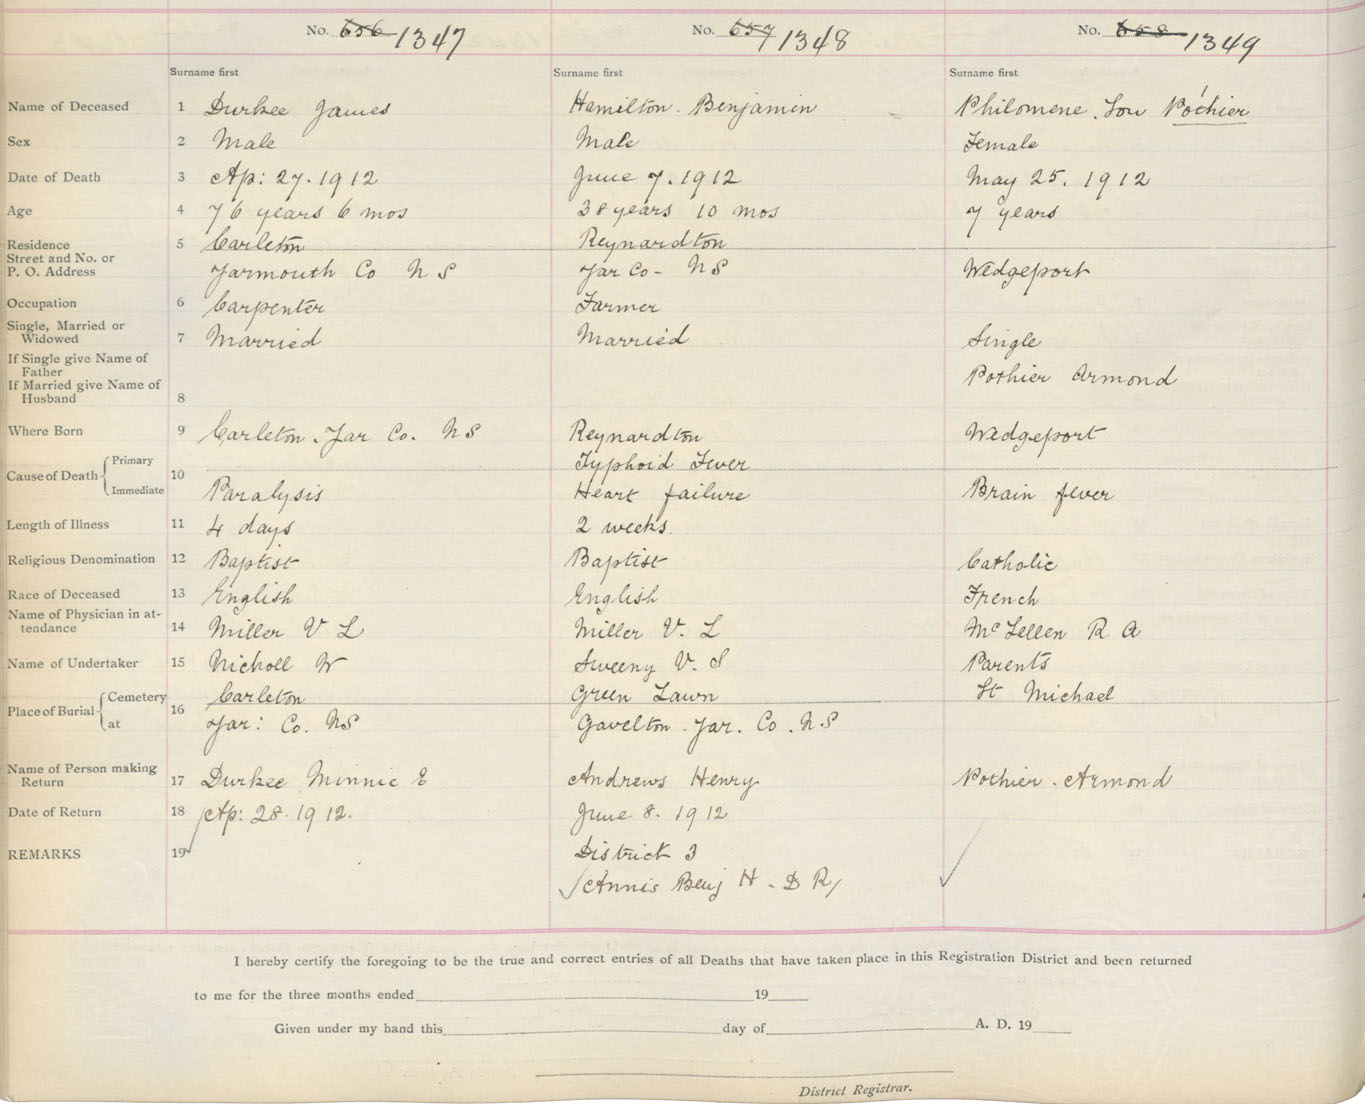 No. 656 1347 No. 657 1348 No. 658 1349
Surname first Surname first Surname first
Name of Deceased 1 Durkee James Hamilton. Benjamin Philomene. Lou Pothier
Sex 2 Male Male Female
Date of Death 3 Ap: 27. 1912 June 7. 1912 May 25. 1912
Age 4 76 years 6 mos 38 years 10 mos 7 years
Residence 5 Carleton Reynardton
Street and No. or
P. O. Address Yarmouth Co N S Yar Co - N S Wedgeport
Occupation 6 Carpenter Farmer
Single, Married or
Widowed 7 Married Married Single
If Single give Name of
Father Pothier Armond
If Married give Name of
Husband 8
Where Born 9 Carleton. Yar Co. N S Reynardton Wedgeport
Cause of Death Primary 10 Typhoid Fever
Immediate Paralysis Heart failure Brain fever
Length of Illness 11 4 days 2 weeks.
Religious Denomination 12 Baptist Baptist Catholic
Race of Deceased 13 English English French
Name of Physician in at-
tendance 14 Miller V L Miller V. L McLellen R A
Name of Undertaker 15 Nicholl W Sweeny V. S Parents
Place of Burial Cemetery 16 Carleton Green Lawn St Michael
at Yar: Co. N S Gavelton. Yar. Co. N. S
Name of Person making
Return 17 Durkee Minnie E Andrews Henry Pothier. Armond
Date of Return 18 Ap: 28. 1912. June 8. 1912
REMARKS 19 District 3
Annis Benj H - D R/
I hereby certify the foregoing to be the true and correct entries of all Deaths that have taken place in this Registration District and been returned
to me for the three months ended 19
Given under my hand this day of A. D. 19
District Registrar.